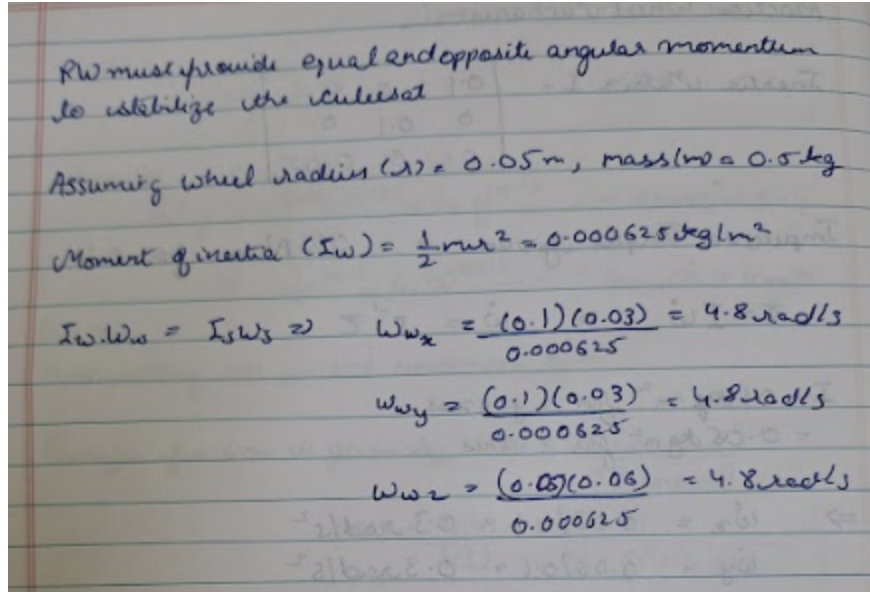 RW must provide equal and opposite angular momentum
to stabilize the cubesat
Assuming wheel radius (r) = 0.05m, mass (m) = 0.5 kg
Moment of inertia (Iw) = 1/2 mr² = 0.000625 kg/m²
Iw.Ww = IsWs => Wwx = (0.1)(0.03)/0.000625 = 4.8 rad/s
Wwy = (0.1)(0.03)/0.000625 = 4.8 rad/s
Wwz = (0.05)(0.06)/0.000625 = 4.8 rad/s